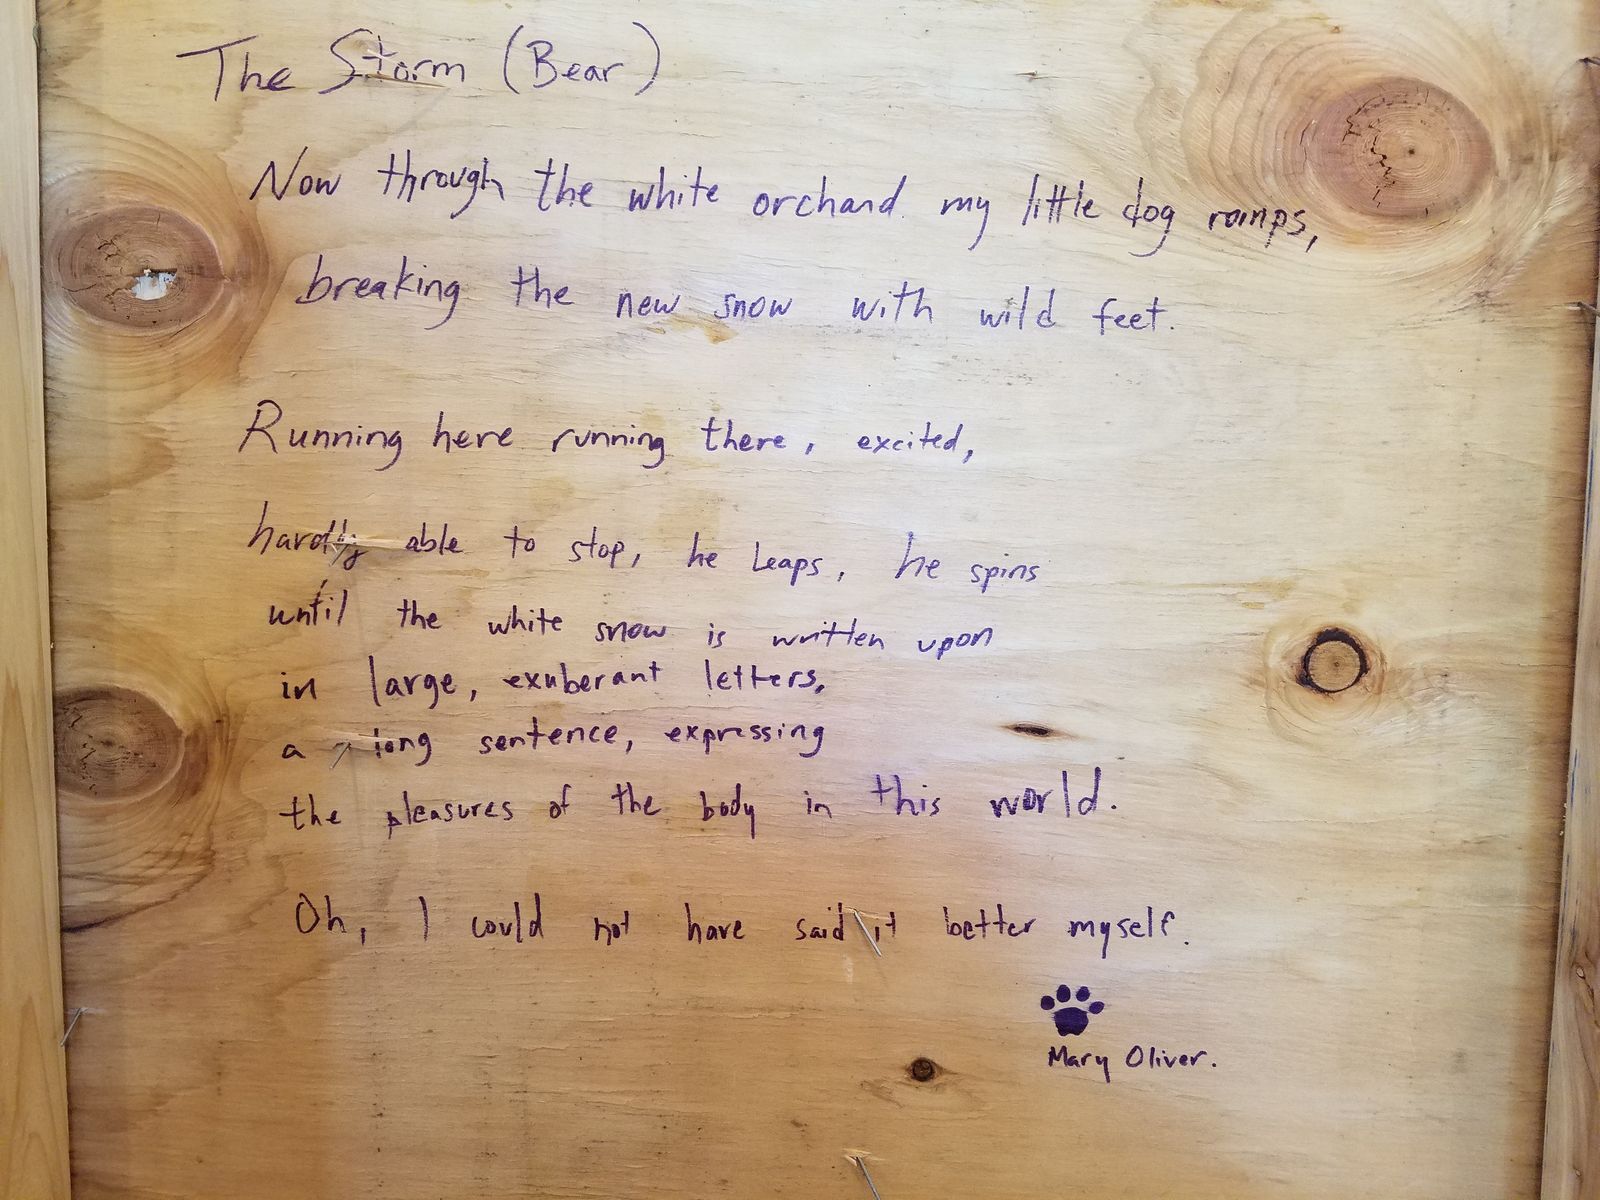 The Storm (Bear)
Now through the white orchard my little dog romps,
breaking the new snow with wild feet.
Running here running there, excited,
hardly able to stop, he leaps, he spins
until the white snow is written upon
in large, exuberant letters,
a long sentence, expressing
the pleasures of the body in this world.
Oh, I could not have said it better myself.
Mary Oliver.